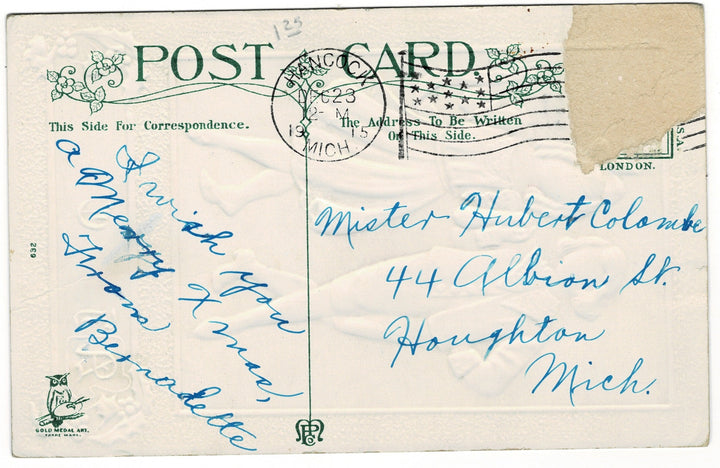 1 25
POST CARD
HANCOCK
DEC 23
2 - M
19 15
MICH.
This Side For Correspondence.
The Address To Be Written
On This Side.
LONDON.
U.S.A.
I wish you
a Merry Xmas,
From
Bernadette
Mister Hubert Colombe
44 Albion St.
Houghton
Mich.
632
GOLD MEDAL ART.
TRADE MARK.